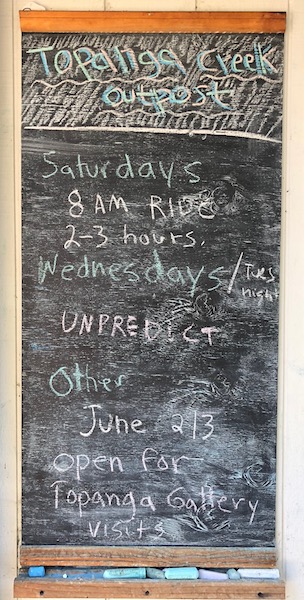 Topanga Creek
outpost
Saturdays
8 AM RIDE
2-3 hours.
Wednesdays/Tues
night
UNPREDICT
Other
June 2/3
open for
Topanga Gallery
visits